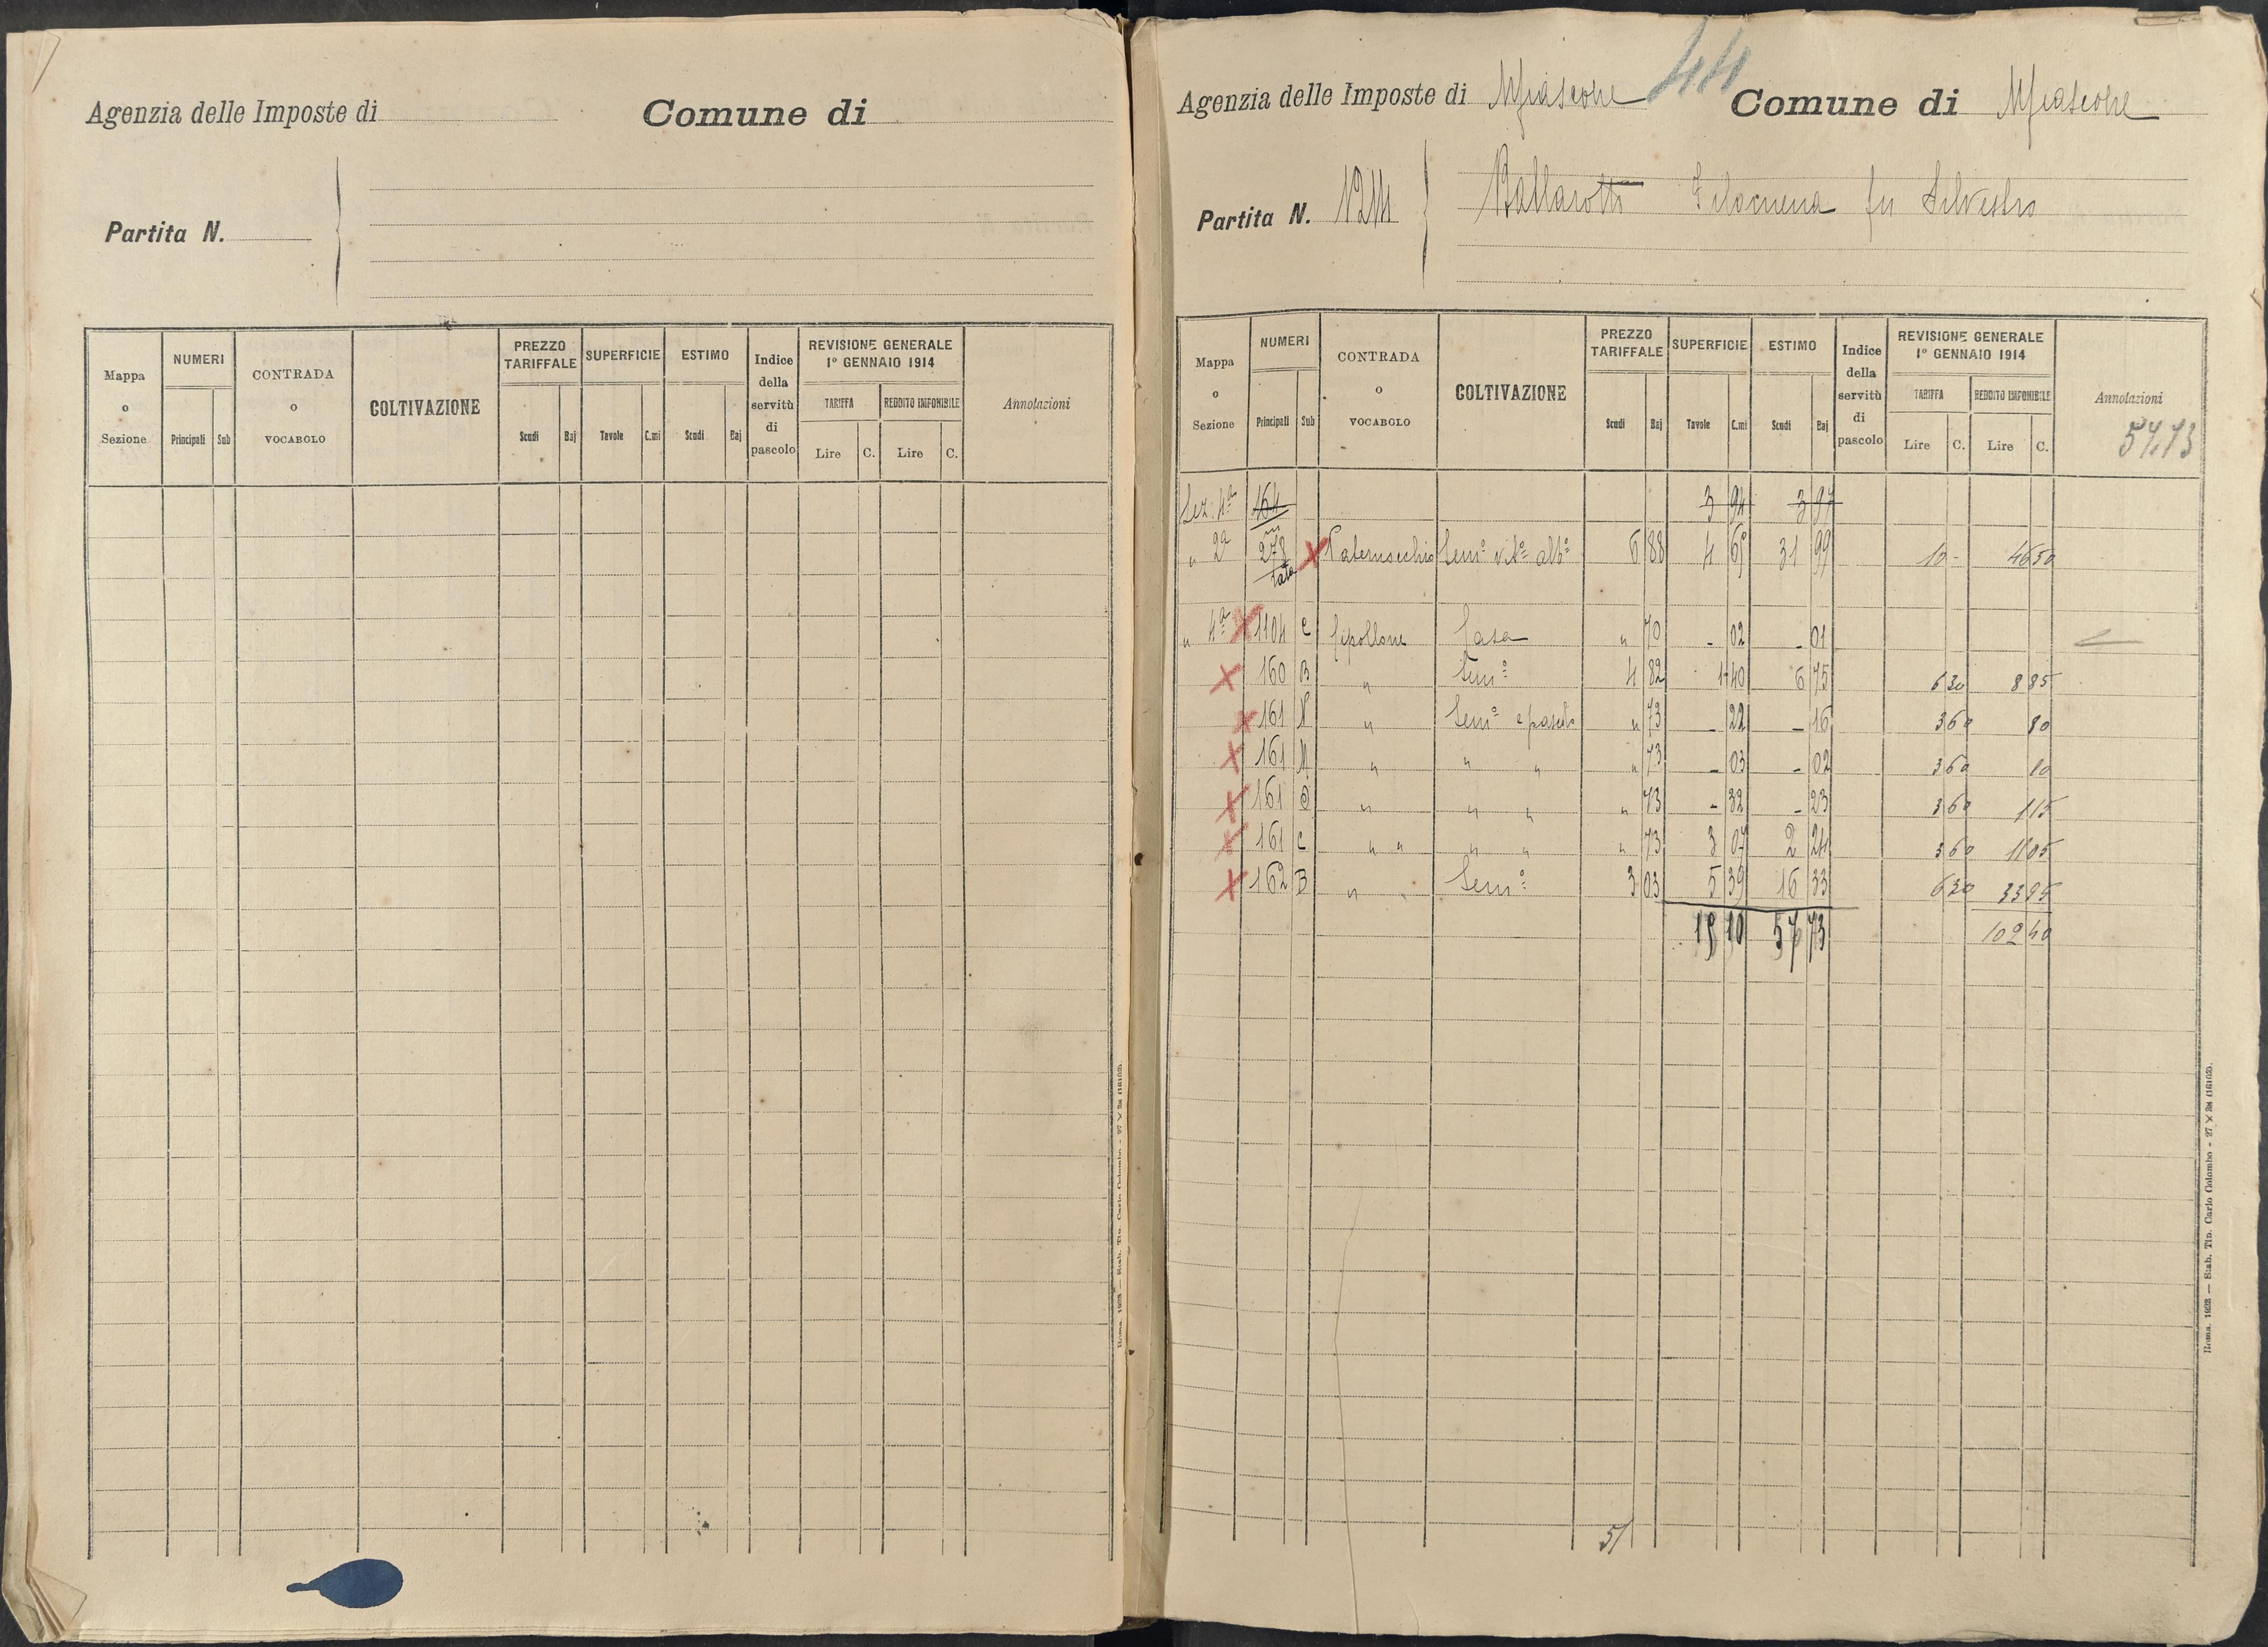 Agenzia delle Imposte di
Comune di
Partita N.
Mappa o Sezione
NUMERI
Principali
Sub
CONTRADA o VOCABOLO
COLTIVAZIONE
PREZZO TARIFFALE
Scudi
Baj
SUPERFICIE
Tavole
C.mi
ESTIMO
Scudi
Baj
Indice della servitù di pascolo
REVISIONE GENERALE 1° GENNAIO 1914
TARIFFA
Lire
C.
REDDITO IMPONIBILE
Lire
C.
Annotazioni
Roma, 1923 — Stab. Tip. Carlo Colombo - 27 X 34 (16102).
44
Agenzia delle Imposte di
Comune di
Partita N. 1214
Ballarotti Filomena fu Silvestro
Mappa o Sezione
NUMERI
Principali
Sub
CONTRADA o VOCABOLO
COLTIVAZIONE
PREZZO TARIFFALE
Scudi
Baj
SUPERFICIE
Tavole
C.mi
ESTIMO
Scudi
Baj
Indice della servitù di pascolo
REVISIONE GENERALE 1° GENNAIO 1914
TARIFFA
Lire
C.
REDDITO IMPONIBILE
Lire
C.
Annotazioni
57.73
Sez. 4ª 164 3 94 3 97
" 2ª 278 Sem° vit° alb° 6 88 4 65 31 99 10 - 46 50
" 4ª 1104 C Cipollone Casa " 70 - 02 - 01
160 B " Sem° 4 82 1 40 6 75 6 30 8 85
161 N " Sem° e pascolo " 73 - 22 - 16 3 60 80
161 M " " " " 73 - 03 - 02 3 60 10
161 O " " " " 73 - 32 - 23 3 60 1 15
161 C " " " " " 73 3 07 2 24 3 60 11 05
162 B " " Sem° 3 03 5 39 16 33 6 30 33 95
15 10 57 73 102 40
51
Roma, 1923 — Stab. Tip. Carlo Colombo - 27 X 34 (16102).